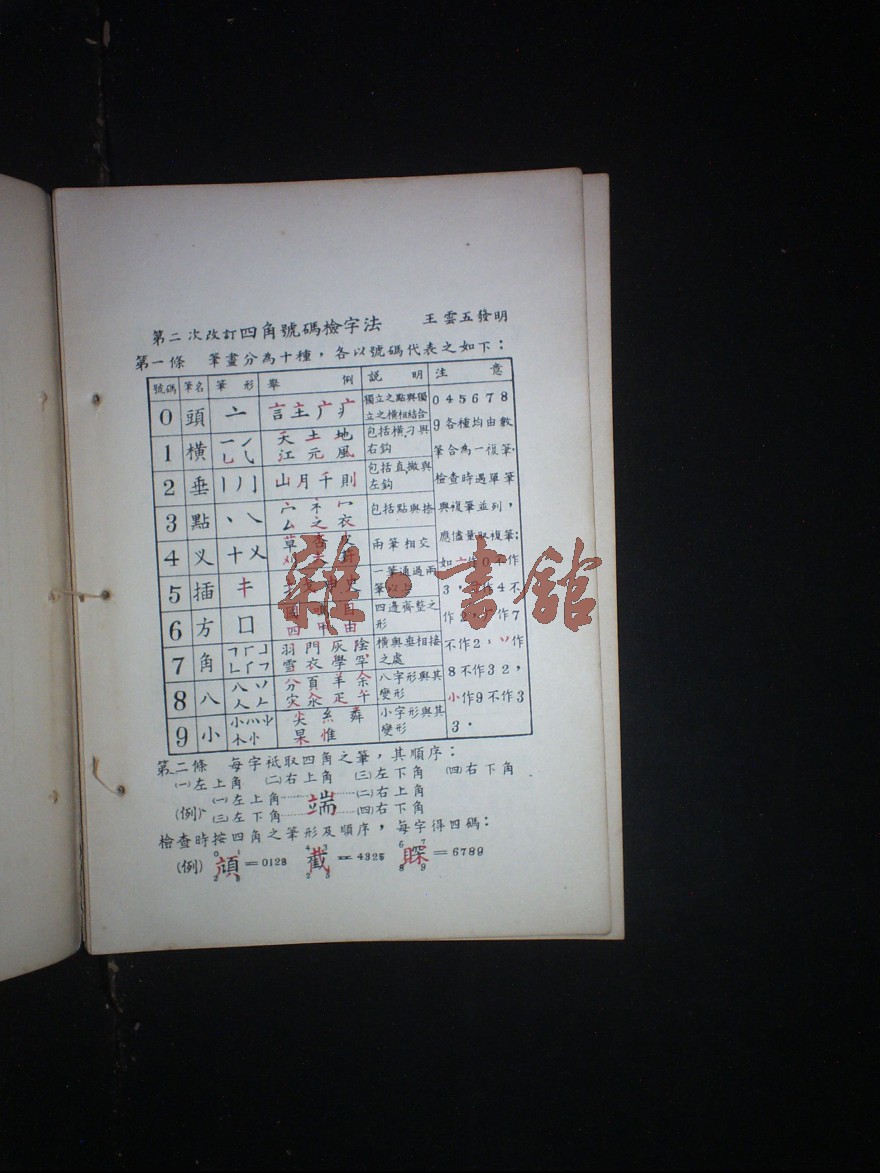 第二次改訂四角號碼檢字法 王雲五發明
第一條 筆畫分為十種，各以號碼代表之如下：
號碼 筆名 筆形 舉例 說明 注意
0 頭 亠 言主广疒 獨立之點與獨立之橫相結合
1 橫 一㇀乚㇂ 天土地江元風 包括橫刁與右鈎
2 垂 丨丿亅 山月千則 包括直撇與左鈎
3 點 丶㇏ 宀礻冖厶之衣 包括點與捺
4 乂 十乂 草杏 兩筆相交
5 插 キ 一筆通過兩筆以上
6 方 口 國 目四甲由 四邊齊整之形
7 角 羽門灰陰雪衣學罕 橫與垂相接之處
8 八 八丷人𠂉 分頁羊余災汆疋午 八字形與其變形
9 小 尖糸舜杲惟 小字形與其變形
045678
9各種均由數
筆合為一復筆·
檢查時遇單筆
與複筆並列，
應儘量取複筆；
不作
3， 作4不
作 作7
不作2，丷作
8不作32，
小作9不作3
3．
第二條 每字祇取四角之筆，其順序：
㈠左上角 ㈡右上角 ㈢左下角 ㈣右下角
(例) ㈠左上角 端 ㈡右上角
㈢左下角 ㈣右下角
檢查時按四角之筆形及順序，每字得四碼：
(例) 顏=0128 截=4325 䁎=6789
雜·書館